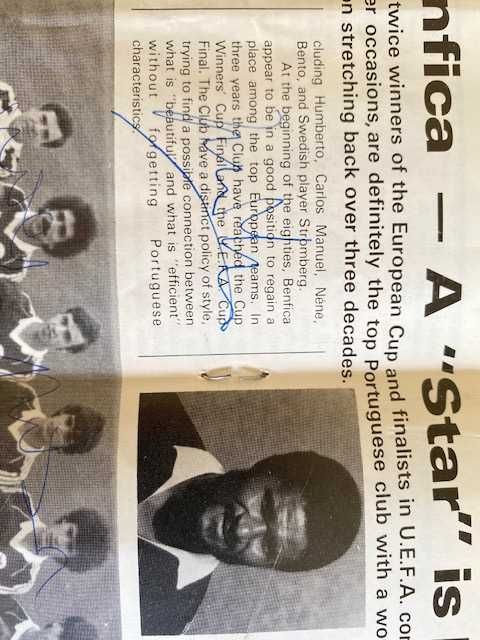 nfica — A "Star" is
twice winners of the European Cup and finalists in U.E.F.A. co
er occasions, are definitely the top Portuguese club with a wo
n stretching back over three decades.
cluding Humberto, Carlos Manuel, Néné,
Bento, and Swedish player Stromberg.
At the beginning of the eighties, Benfica
appear to be in a good position to regain a
place among the top European teams. In
three years the Club have reached the Cup
Winners' Cup Final and the U.E.F.A. Cup
Final. The Club have a distinct policy of style,
trying to find a possible connection between
what is "beautiful" and what is "efficient"
without forgetting Portuguese
characteristics.